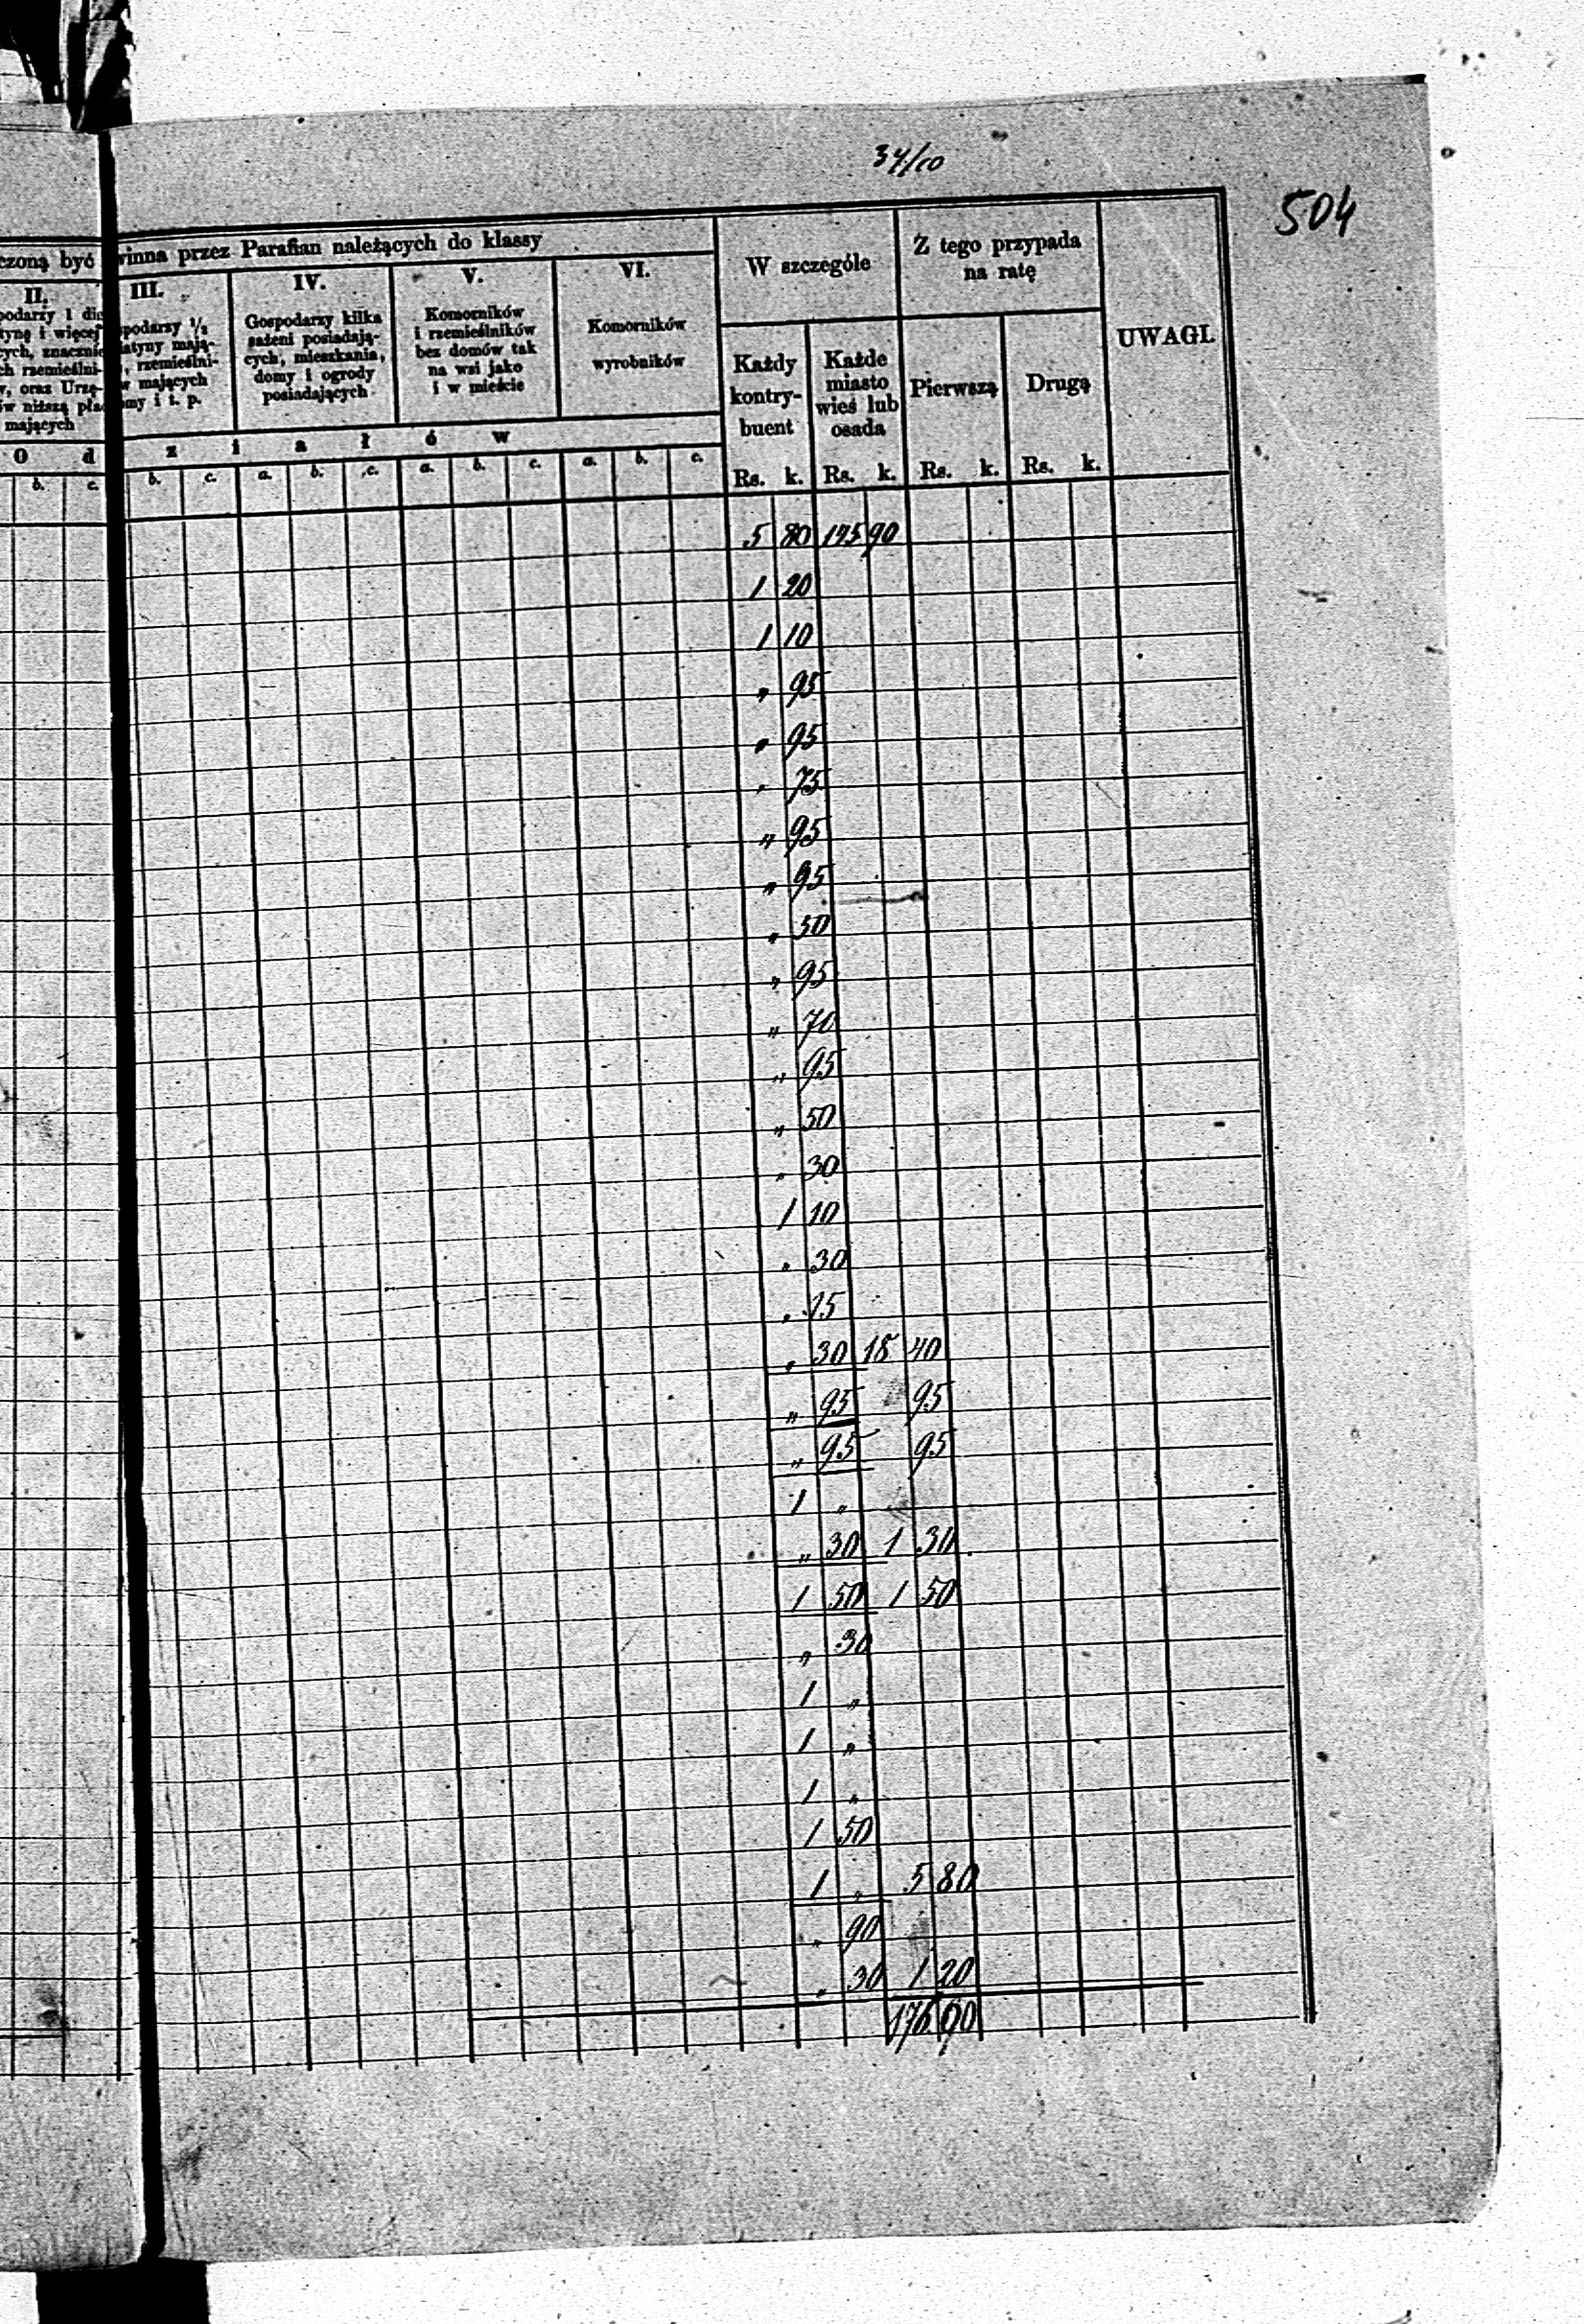 34/10
504
czoną być winna przez Parafian należących do klassy
W szczególe
Z tego przypada
na ratę
UWAGI.
II.
podarzy 1 dzie
tynę i więcej
cych, znacznie
ch rzemieślni-
w, oraz Urzę-
ów niższą płac
mających
III.
spodarzy 1/2
latyny mają-
, rzemieślni-
w mających
omy i t. p.
IV.
Gospodarzy kilka
sażeni posiadają-
cych, mieszkania,
domy i ogrody
posiadających
V.
Komorników
i rzemieślników
bez domów tak
na wsi jako
i w mieście
VI.
Komorników
wyrobników
Każdy
kontry-
buent
Każde
miasto
wieś lub
osada
Pierwszą
Drugą
O d z i a ł ó w
b. c. b. c. a. b. c. a. b. c. a. b. c.
Rs. k. Rs. k. Rs. k. Rs. k.
5 80 175 90
1 20
1 10
" 95
" 95
" 75
" 95
" 95
" 50
" 95
" 70
" 95
" 50
" 30
1 10
" 30
" 15
" 30 18 40
" 95 95
" 95 95
1 "
" 30 1 30
1 50 1 50
" 30
1 "
1 "
1 "
1 50
1 " 5 80
" 90
" 30 1 20
176 00